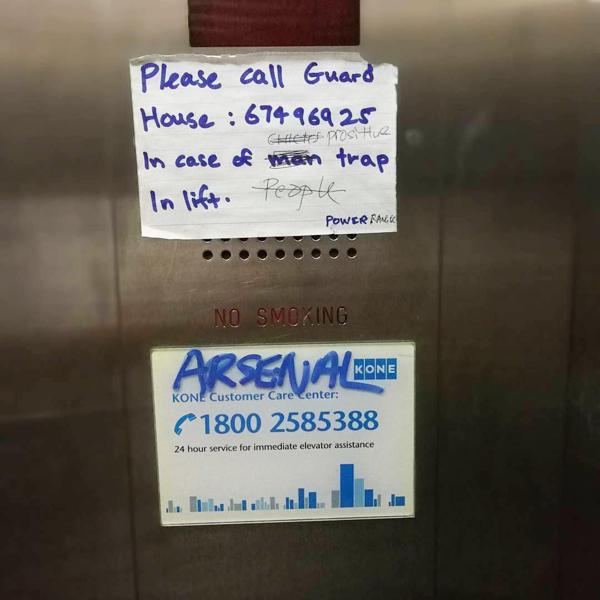 Please call Guard
House : 67496925
prositive
In case of man trap
People
In lift.
POWER RANGE
NO SMOKING
ARSENAL
KONE
KONE Customer Care Center:
1800 2585388
24 hour service for immediate elevator assistance